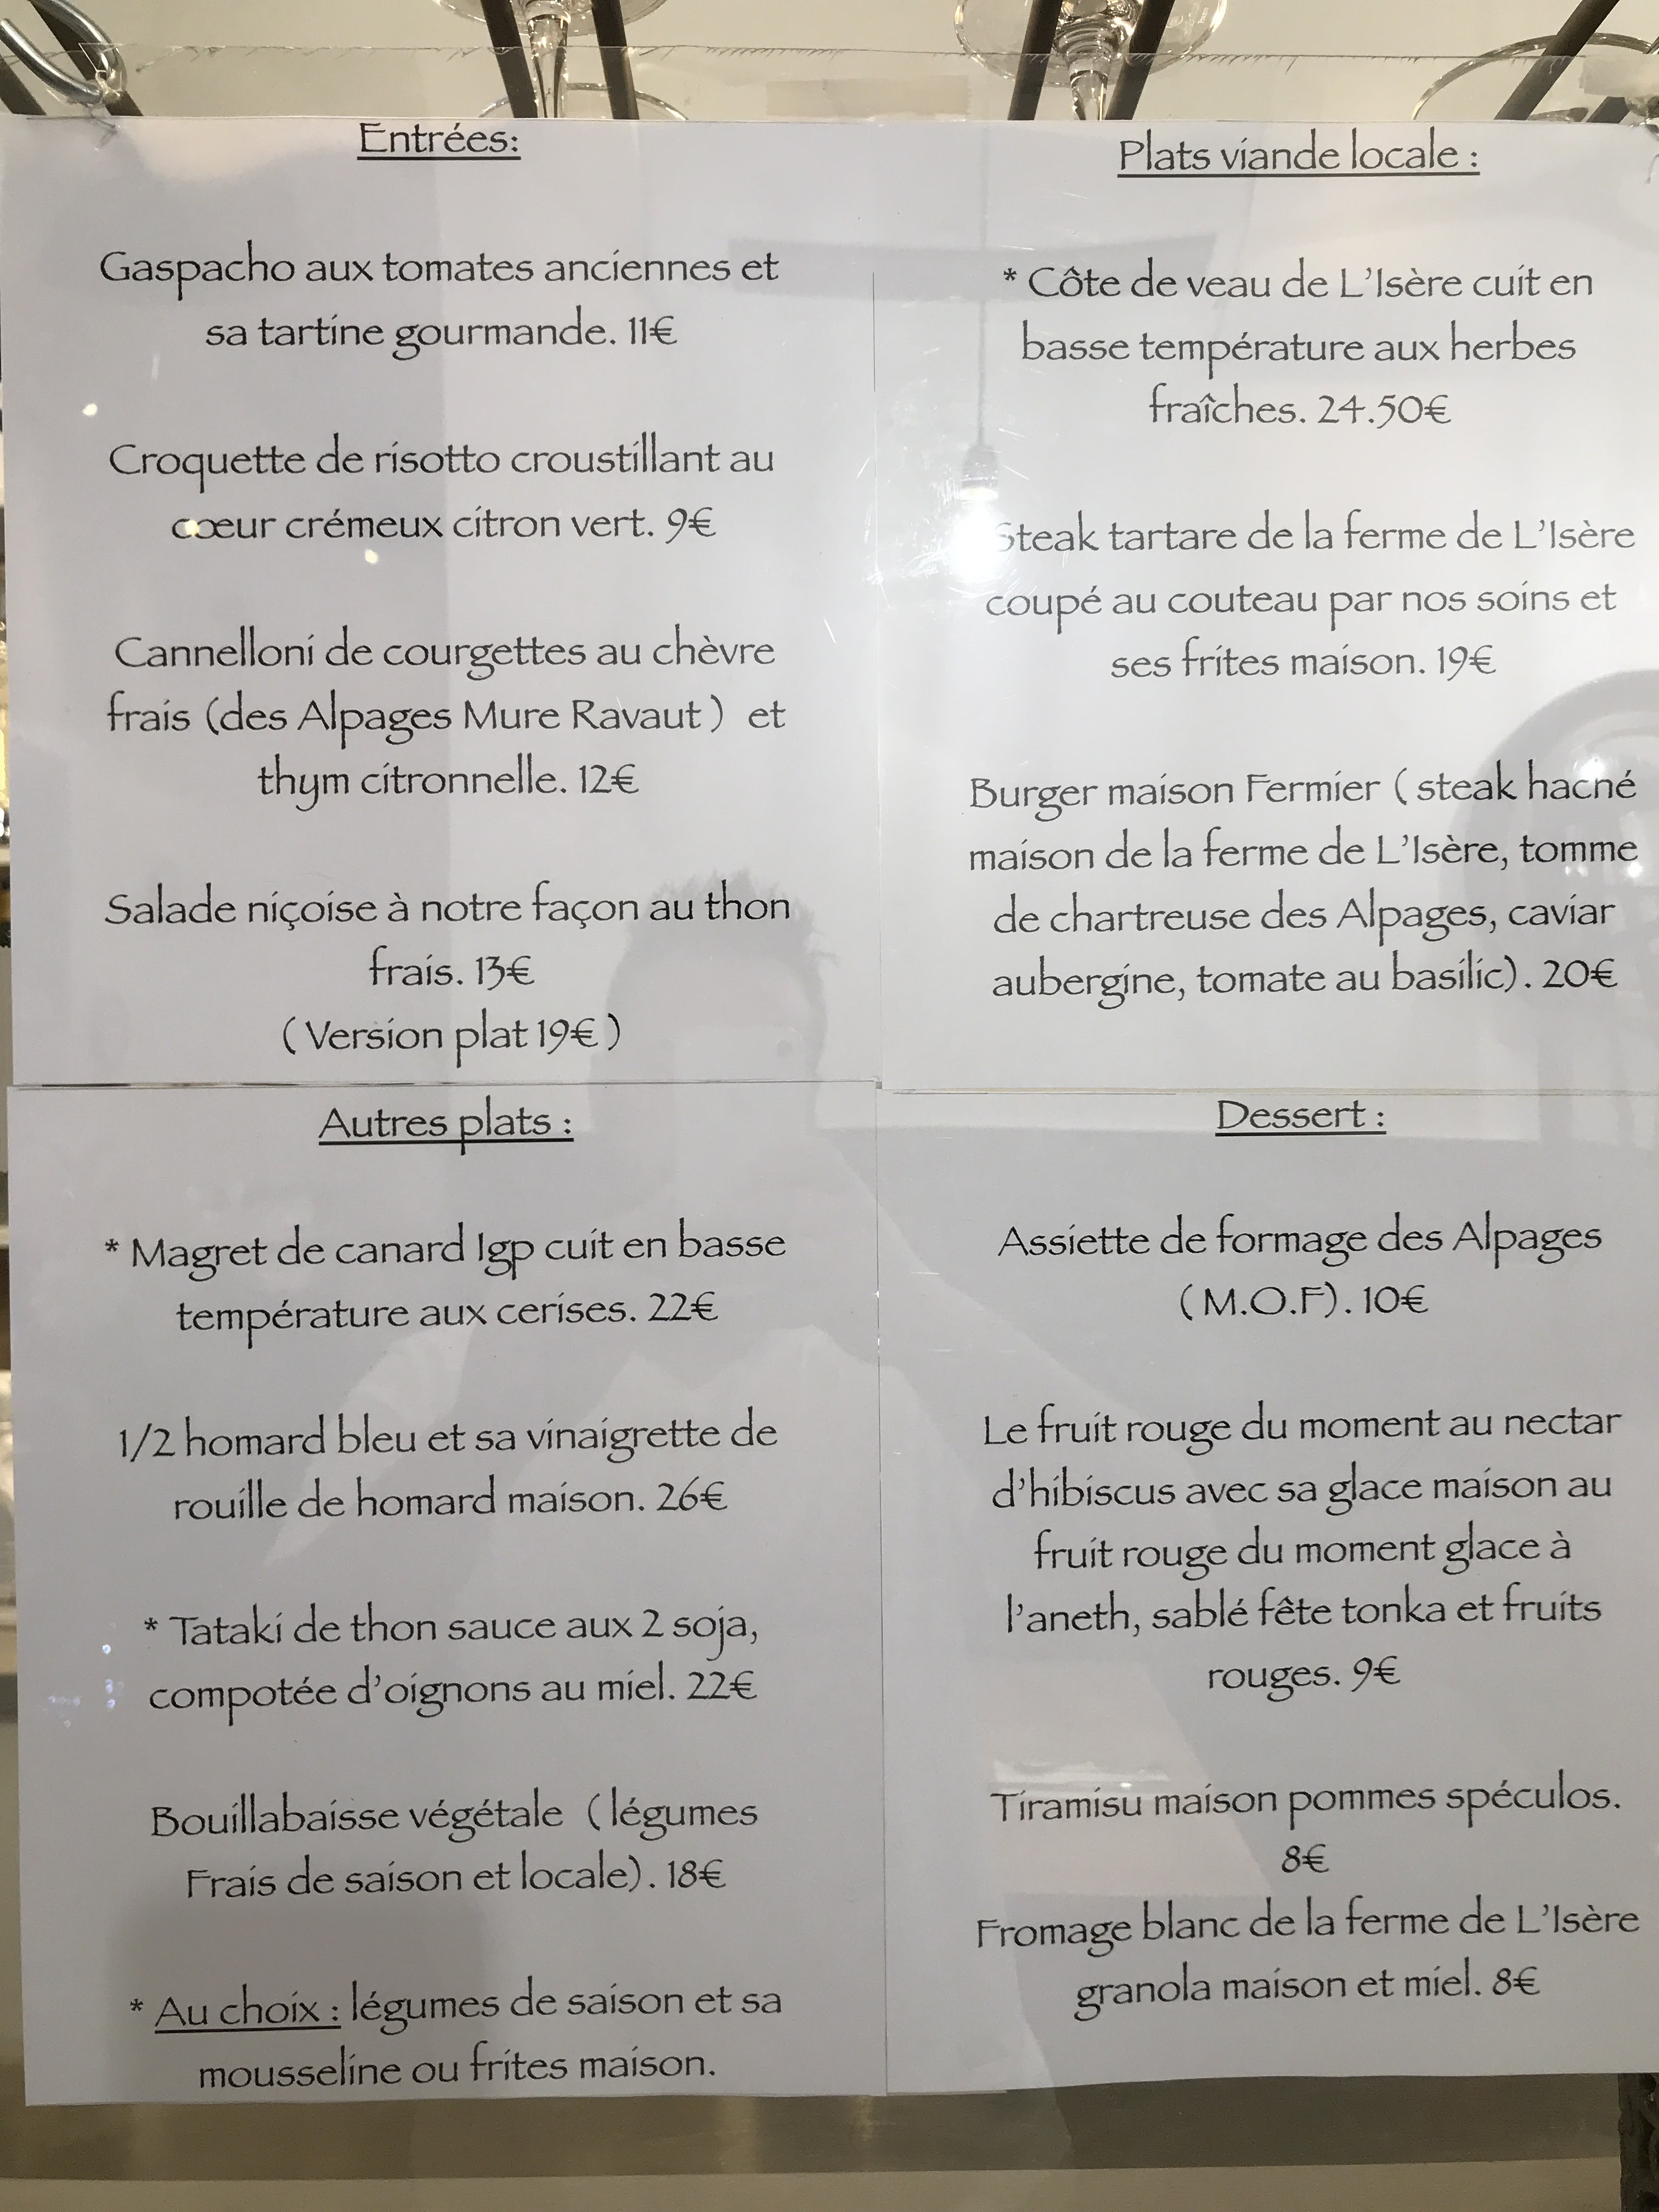 Entrées:
Gaspacho aux tomates anciennes et
sa tartine gourmande. 11€
Croquette de risotto croustillant au
cœur crémeux citron vert. 9€
Cannelloni de courgettes au chèvre
frais (des Alpages Mure Ravaut ) et
thym citronnelle. 12€
Salade niçoise à notre façon au thon
frais. 13€
( Version plat 19€ )
Plats viande locale :
* Côte de veau de L'Isère cuit en
basse température aux herbes
fraîches. 24.50€
Steak tartare de la ferme de L'Isère
coupé au couteau par nos soins et
ses frites maison. 19€
Burger maison Fermier ( steak haché
maison de la ferme de L'Isère, tomme
de chartreuse des Alpages, caviar
aubergine, tomate au basilic) . 20€
Autres plats :
* Magret de canard Igp cuit en basse
température aux cerises. 22€
1/2 homard bleu et sa vinaigrette de
rouille de homard maison. 26€
* Tataki de thon sauce aux 2 soja,
compotée d'oignons au miel. 22€
Bouillabaisse végétale ( légumes
Frais de saison et locale) . 18€
* Au choix : légumes de saison et sa
mousseline ou frites maison.
Dessert :
Assiette de formage des Alpages
( M.O.F) . 10€
Le fruit rouge du moment au nectar
d'hibiscus avec sa glace maison au
fruit rouge du moment glace à
l'aneth, sablé fête tonka et fruits
rouges. 9€
Tiramisu maison pommes spéculos.
8€
Fromage blanc de la ferme de L'Isère
granola maison et miel. 8€